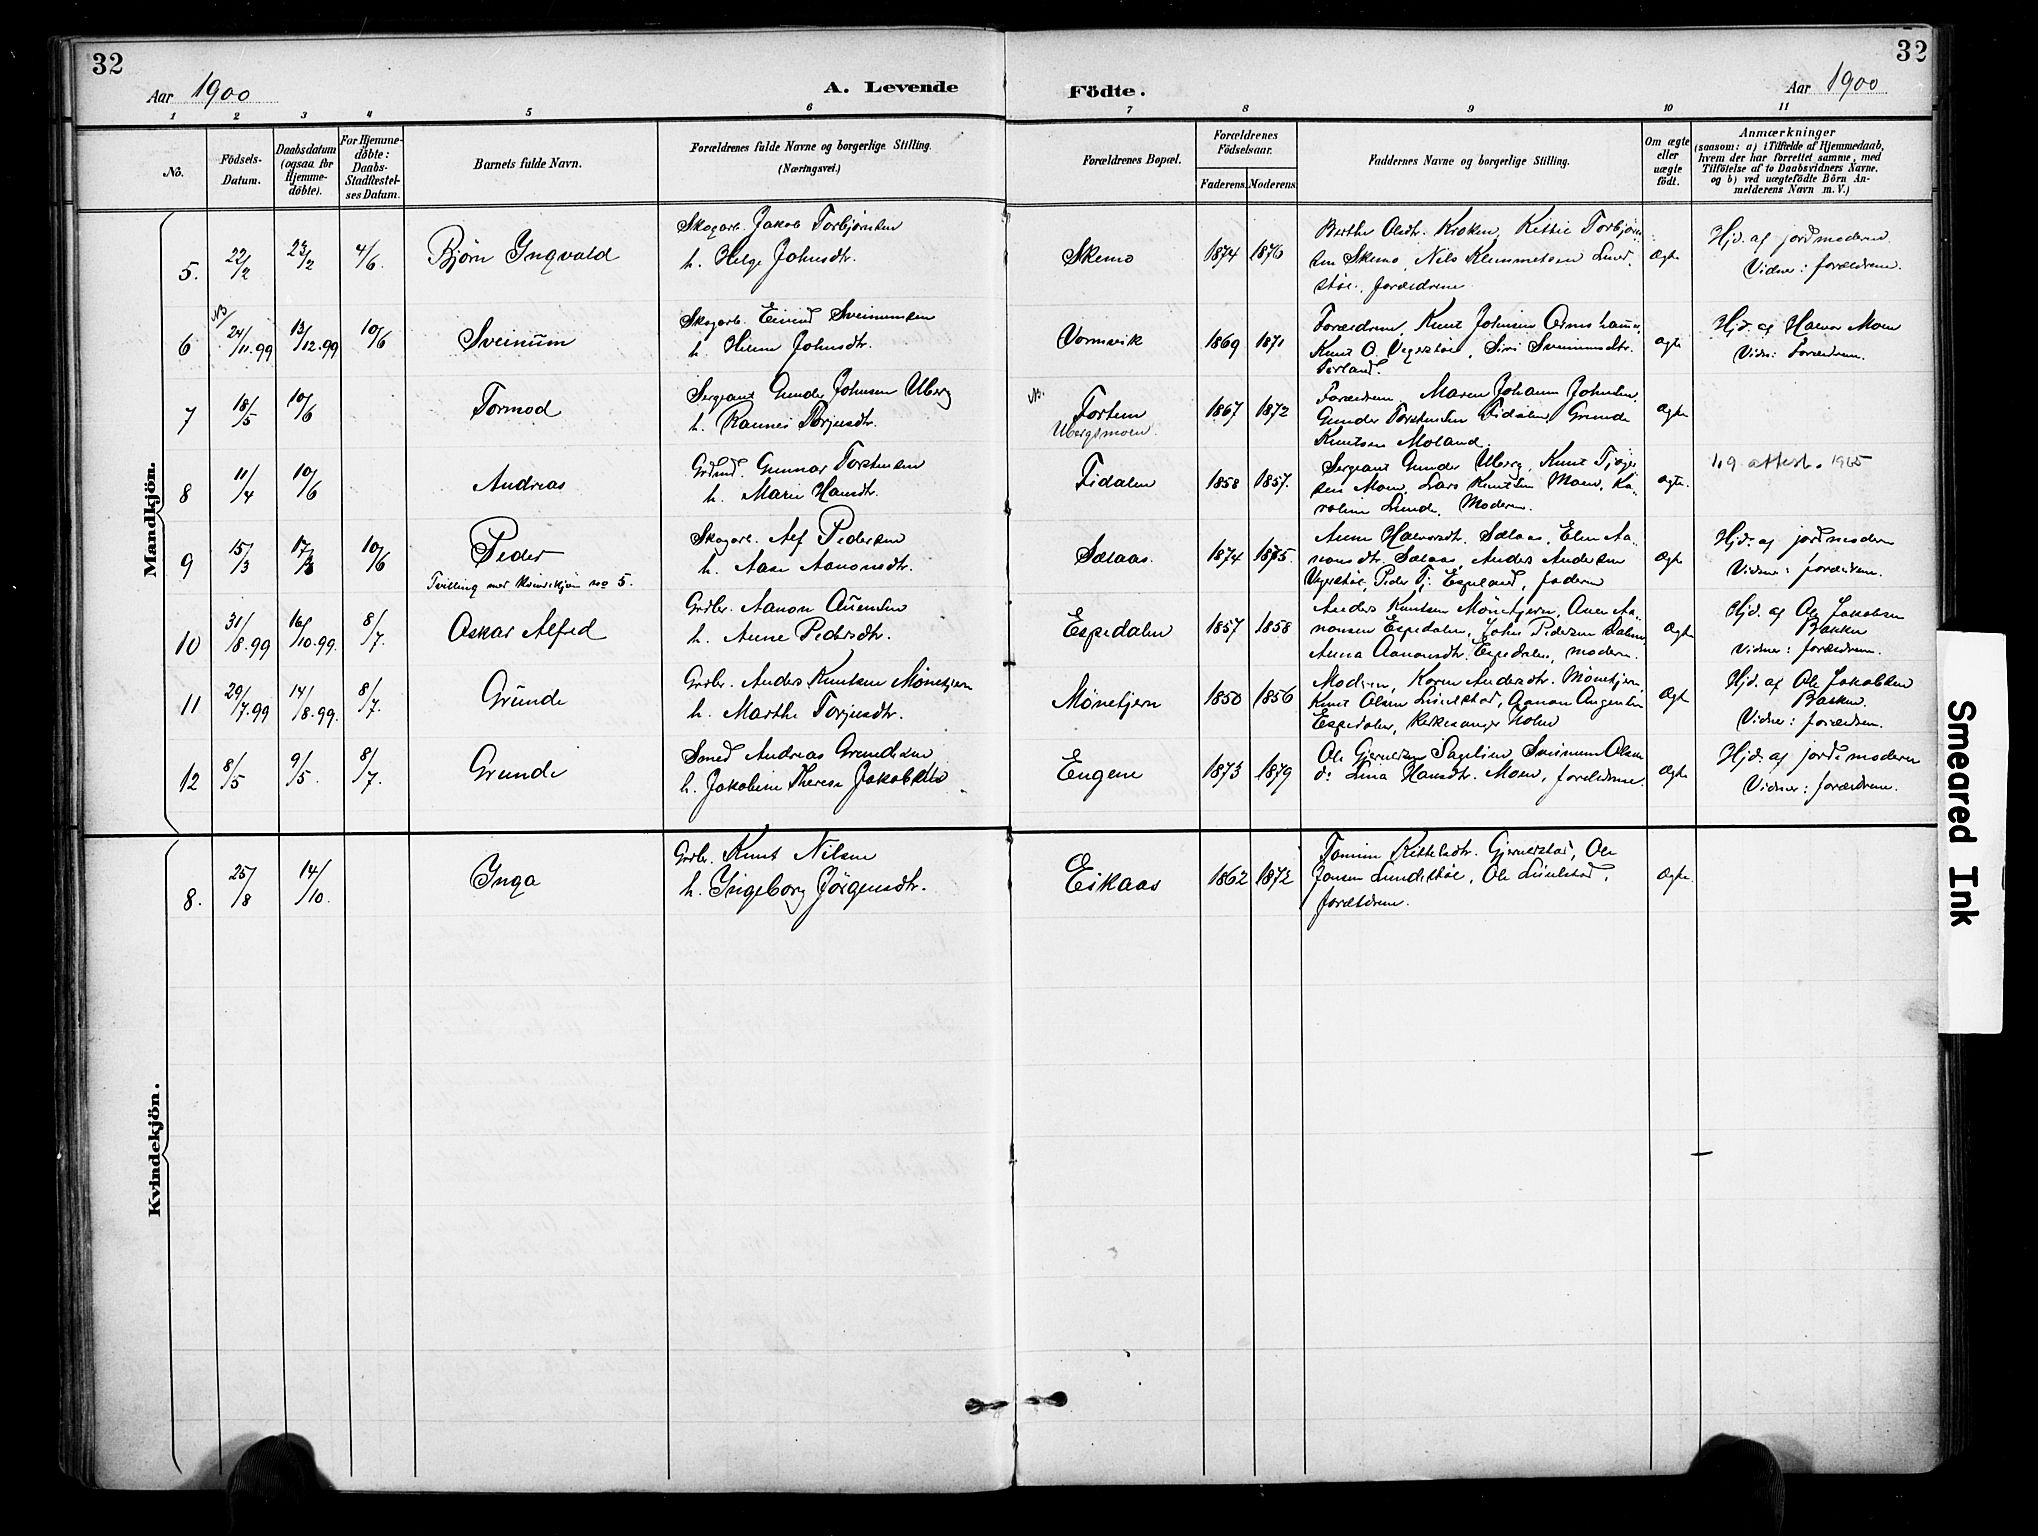 32
32
Aar 1900
A. Levende
Födte.
Aar 1900
1 2 3 4 5 6 7 8 9 10 11
No.
Födsels-
Datum.
Daabsdatum
(ogsaa for
Hjemme-
döbte).
For Hjemme-
döbte:
Daabs-
Stadfæstel-
ses Datum.
Barnets fulde Navn.
Forældrenes fulde Navne og borgerlige Stilling.
(Næringsvei.)
Forældrenes Bopæl.
Forældrenes
Födselsaar.
Faderens. Moderens.
Faddernes Navne og borgerlige Stilling.
Om ægte
eller
uægte
födt.
Anmærkninger
(saasom: a) i Tilfælde af Hjemmedaab,
hvem der har forrettet samme, med
Tilföielse af to Daabsvidners Navne,
og b) ved uægtefödte Börn An-
melderens Navn m. V.)
Mandkjön.
5. 22/2 23/2 4/6. Bjørn Yngvald
Skogarb. Jakob Torbjørnsen
h. Helge Johnsdtr.
Skemo 1874 1876
Berthe Olsdtr. Kroken, Kittil Torbjørn-
sen Skemo, Nils Klemmetsen Lund-
støl, forældrene
Ægte
Hjd. af jordmoderen
Vidner: forældrene.
6 24/11.99 13/12.99 10/6 Sveinŭm
Skogarb. Eivind Sveinumsen
h. Johnsdtr.
Vormvik 1869 1871
Forældrene, Knut Johnsen
Knut O. Vegerstøl, Siri Sveinumsdtr.
ægte
Hjd. af Halvor Moen
Vidn: Forældrene.
7 18/5 10/6 Tormod
Sergeant Gunder Johnsen Uberg
h. Torjusdtr.
NB.
Fortem
Ubergsmoen.
1867 1872
Forældrene, Maren Johanne Johnsen,
Gunder Torstensen Fidalen, Grunde
Knutsen Moland.
Ægte
8 11/4 10/6 Andreas
Gunnar Torstensen
h. Marie Hansdtr.
Fidalen 1858 1857.
Sergeant Gunder Uberg, Knut
sen Moen, Lars Knutsen Moen, Ka-
roline Lunde, Moderen.
ægte.
attest. 1965
9 15/3 17/3 10/6 Peder
Tvilling med Kvindekjøn no 5.
Skogarb. Alf Pedersen
h. Aase Aanonsdtr.
Sælaas. 1874 1875.
Anne Halvorsdtr. Sælaas, Elen Aa-
nonsdtr. Sælaas, Anders Andersen
Vegerstøl, Peder Tj. Espeland, faderen
Ægte
Hjd. af jordmoderen
Vidner: forældrene.
10 31/8.99 16/10.99. 8/7. Oskar Alfred
Grdbr. Aanon Aŭensen
h. Anne Pedersdtr.
Espedalen 1857 1858
Anders Knutsen Mönetjern, Auen Aa-
nonsen Espedalen, John Pedersen Dalen,
Anna Aanonsdtr. Espedalen, moderen.
Ægte
Hjd. af Ole Jakobsen
Bakken
Vidner: forældrene.
11 29/7.99 14/8.99. 8/7. Grŭnde
Grdbr. Anders Knutsen Mönetjern
h. Marthe Torjusdtr.
Mönetjern 1850 1856
Moderen, Karen Andersdtr. Mönetjern,
Knut Olsen Lindelstad, Aanon Augensen
Espedalen, Kirkesanger Holm
Ægte
Hjd. af Ole Jakobsen
Bakken.
Vidner: forældrene.
12 8/5 9/5. 8/7. Grunde
Smed Andreas Grundesen
h. Jakobine Therese Jakobsen
Eugene 1873 1879
Ole Gjeruldsen Sagelien, Sveinum Olsen
d: Lina Hansdtr. Moen, forældrene.
Ægte
Hjd. af jordemoderen
Vidner: forældrene.
Kvindekjön.
8. 25/8 14/10. Inga
Grdbr. Knut Nilsen
h. Ingeborg Jörgensdtr.
Eikaas 1862 1872
Tomine Kittelsdtr. Gjerulstad, Ole
Jensen Lundestøl, Ole Lindelstad,
forældrene.
Ægte
Smeared Ink